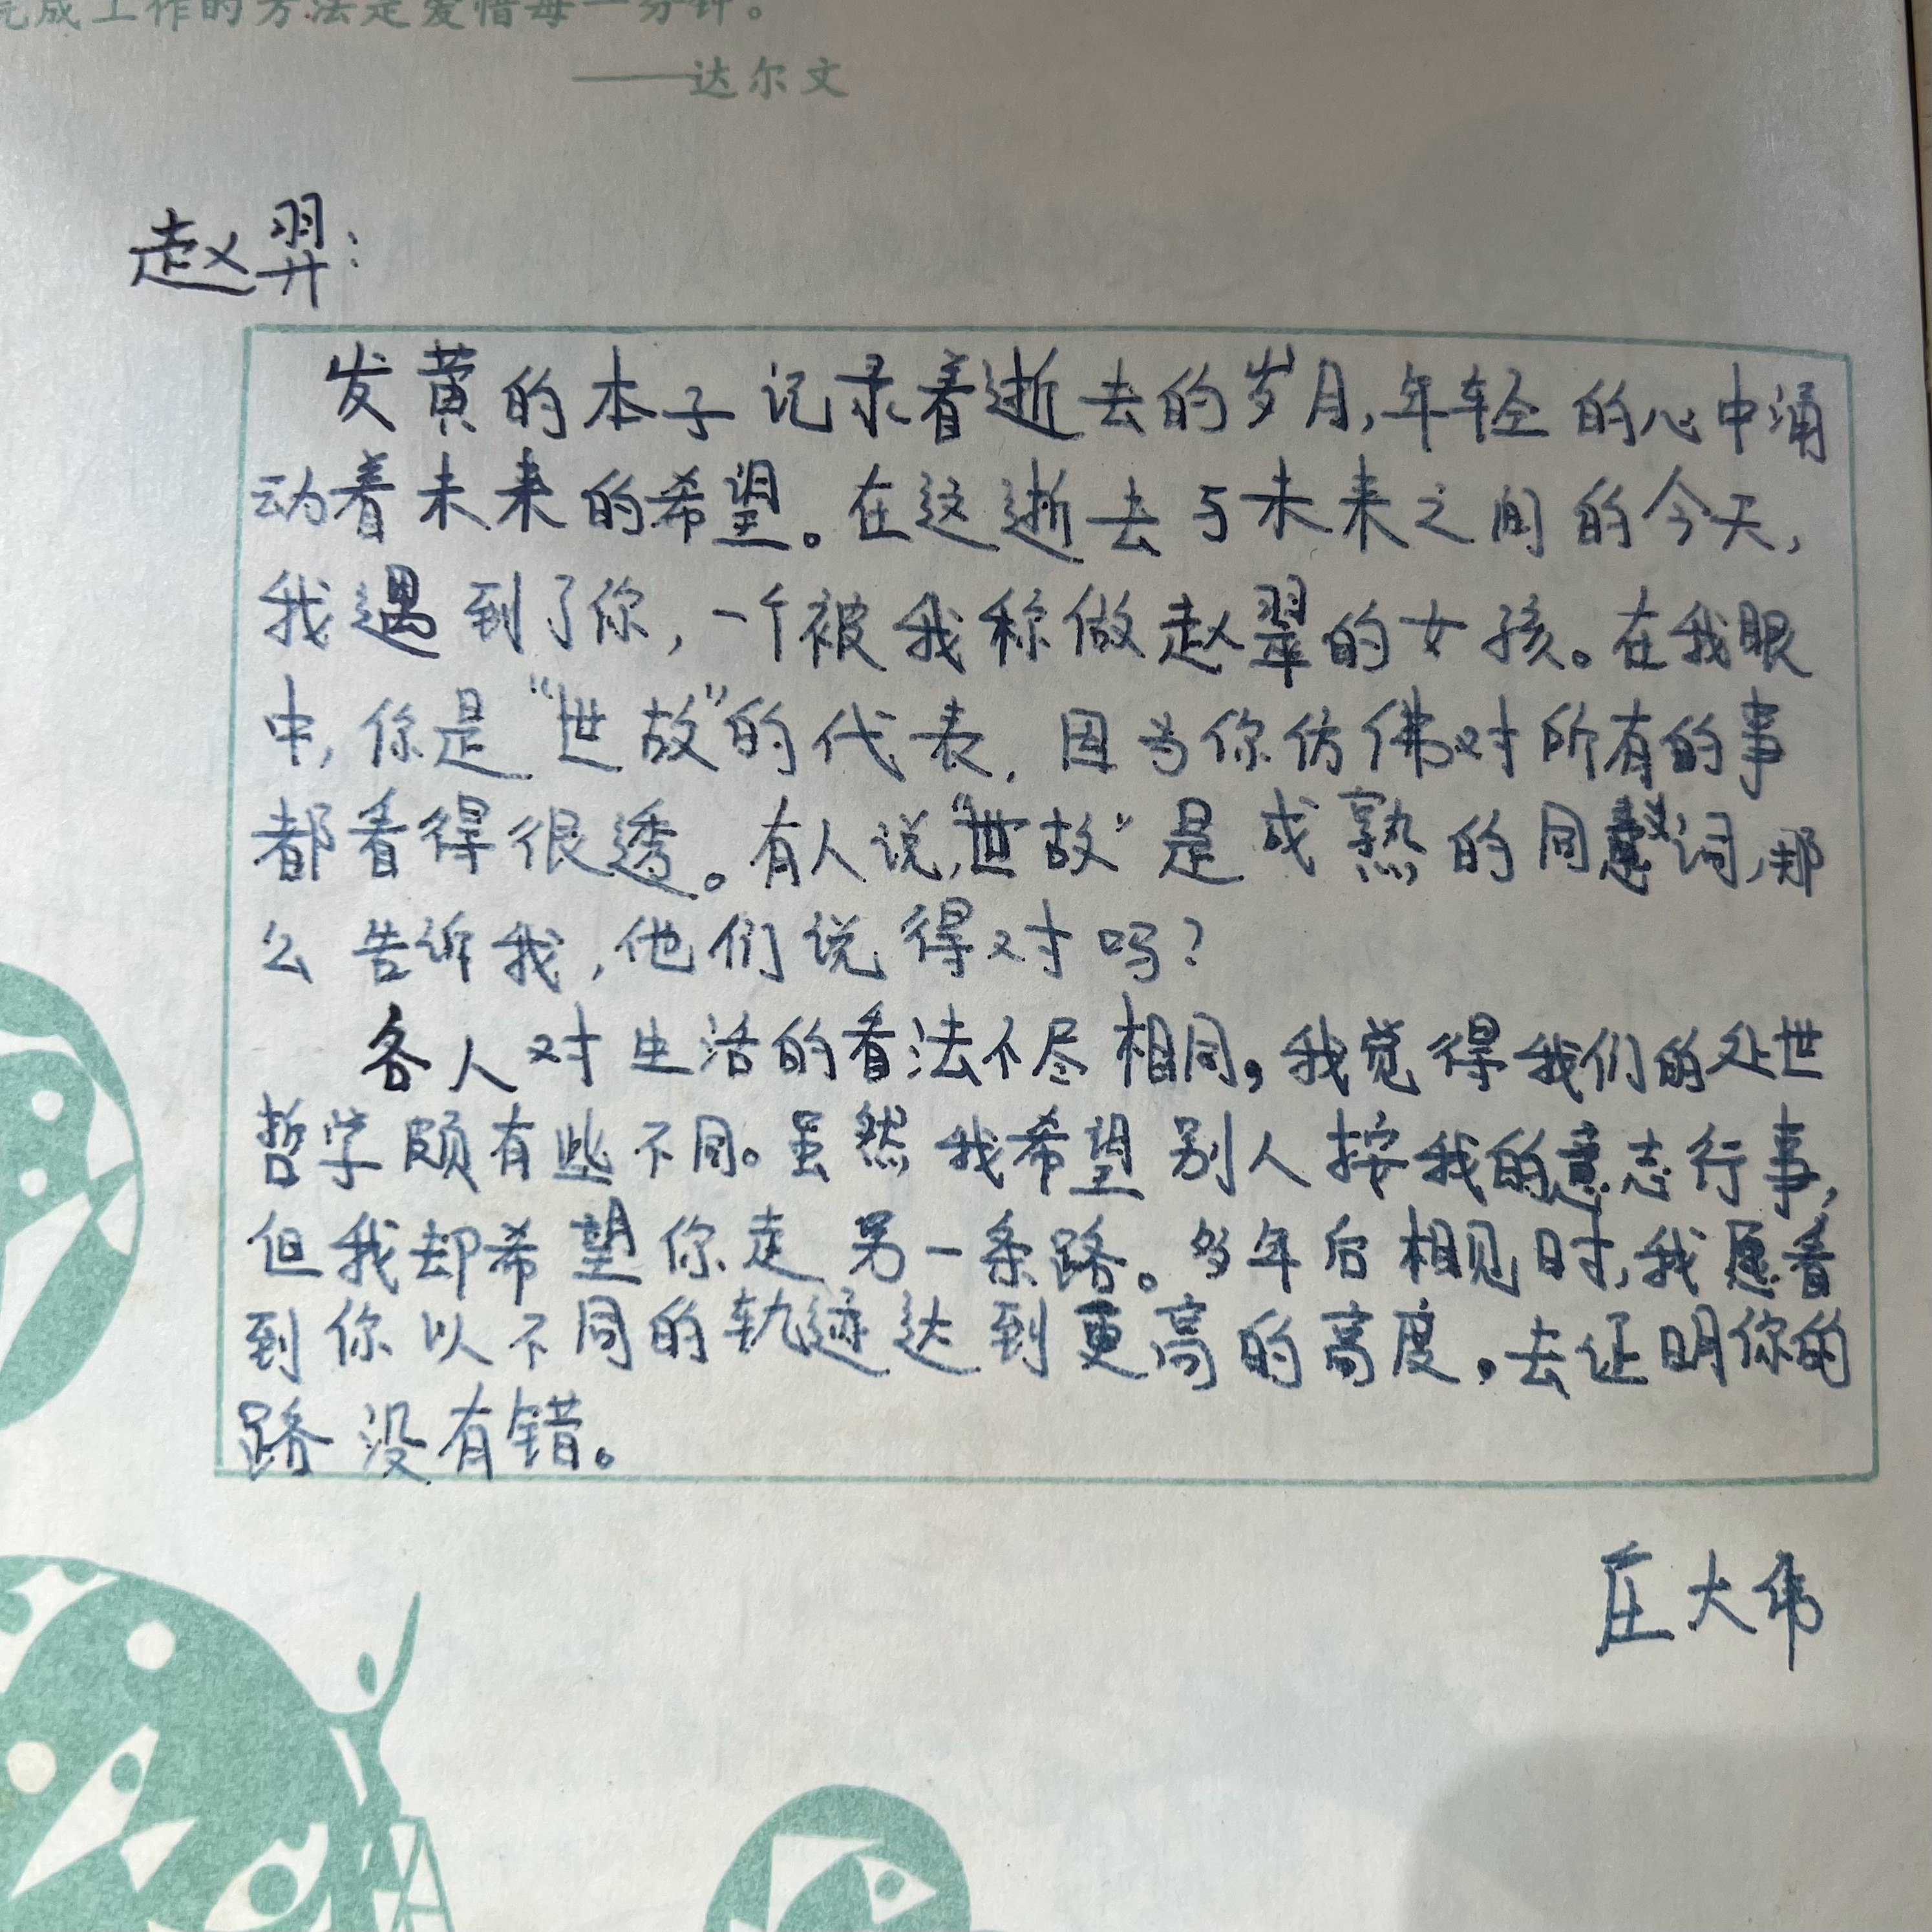 完成工作的方法是爱惜每一分钟。
——达尔文
赵羿：
发黄的本子记录着逝去的岁月,年轻的心中涌
动着未来的希望。在这逝去与未来之间的今天,
我遇到了你,一个被我称做赵翠的女孩。在我眼
中,你是“世故”的代表,因为你仿佛对所有的事
都看得很透。有人说,“世故”是成熟的同义词,那
么告诉我,他们说得对吗?
各人对生活的看法不尽相同,我觉得我们的处世
哲学颇有些不同。虽然我希望别人按我的意志行事,
但我却希望你走另一条路。多年后相见时,我愿看
到你以不同的轨迹达到更高的高度。去证明你的
路没有错。
庄大伟